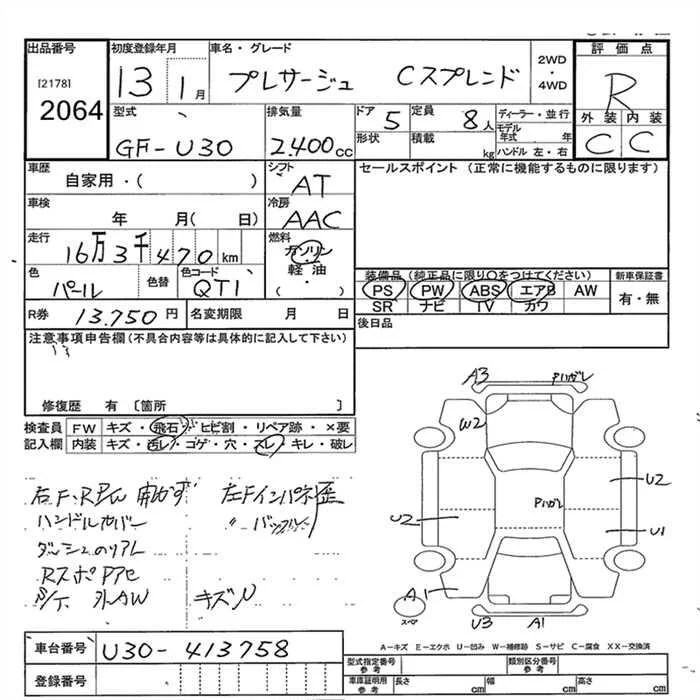 出品番号
[2178]
2064
初度登録年月
13 1月
車名・グレード
プレサージュ Cスプレンド
2WD
・
4WD
評価点
R
外装 内装
C C
型式
GF-U30
排気量
2.400cc
ドア 5
形状
定員 8人
積載 kg
ディーラー・並行
モデル年式 年
ハンドル 左・右
車歴
自家用・( )
シフト
AT
セールスポイント (正常に機能するものに限ります)
車検
年 月( 日)
冷房
AAC
走行
16万3千470km
燃料
ガソリン
・
軽油
( )
色
パール
色替
色コード
QT1
装備品 (純正品に限り○をつけてください)
PS PW ABS エアB AW
SR ナビ TV カワ
新車保証書
有・無
R券 13.750円
名変期限 月 日
後日品
注意事項申告欄(不具合内容等は具体的に記入して下さい)
修復歴 有 〔箇所 〕
検査員
記入欄
FW キズ・飛石・ヒビ割・リペア跡・×要
内装 キズ・汚レ・コゲ・穴・スレ・キレ・破レ
右F、RPW 動かず 左Fインパネ歪
ハンドルカバー 〃
ダッシュのリアレ
RスポPアセ
S/T 外AW キズ
A3
Pハガレ
W2
U2
Pハガレ
U2
U1
A1
スペア
U3 A1
A－キズ E－エクボ U－凹み W－補修跡 S－サビ C－腐食 XX－交換済
車台番号 U30-413758
登録番号
型式指定番号
参考
類別区分番号
参考
車庫証明用
参考
長さ cm 幅 cm 高さ cm